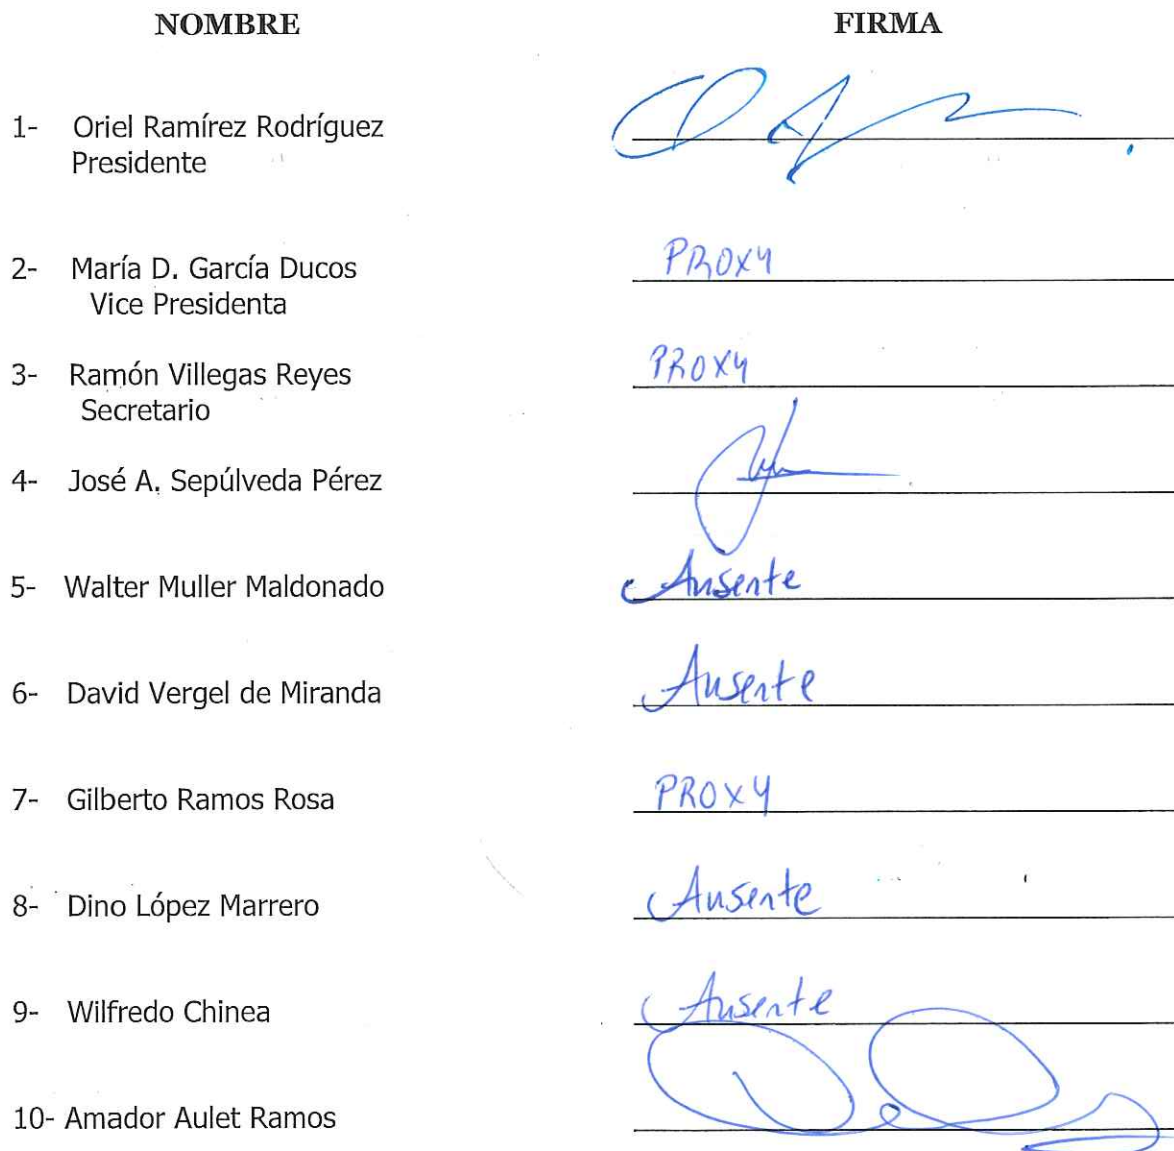 NOMBRE FIRMA
1- Oriel Ramírez Rodríguez
Presidente
2- María D. García Ducos PROXY
Vice Presidenta
3- Ramón Villegas Reyes PROXY
Secretario
4- José A. Sepúlveda Pérez
5- Walter Muller Maldonado Ausente
6- David Vergel de Miranda Ausente
7- Gilberto Ramos Rosa PROXY
8- Dino López Marrero Ausente
9- Wilfredo Chinea Ausente
10- Amador Aulet Ramos